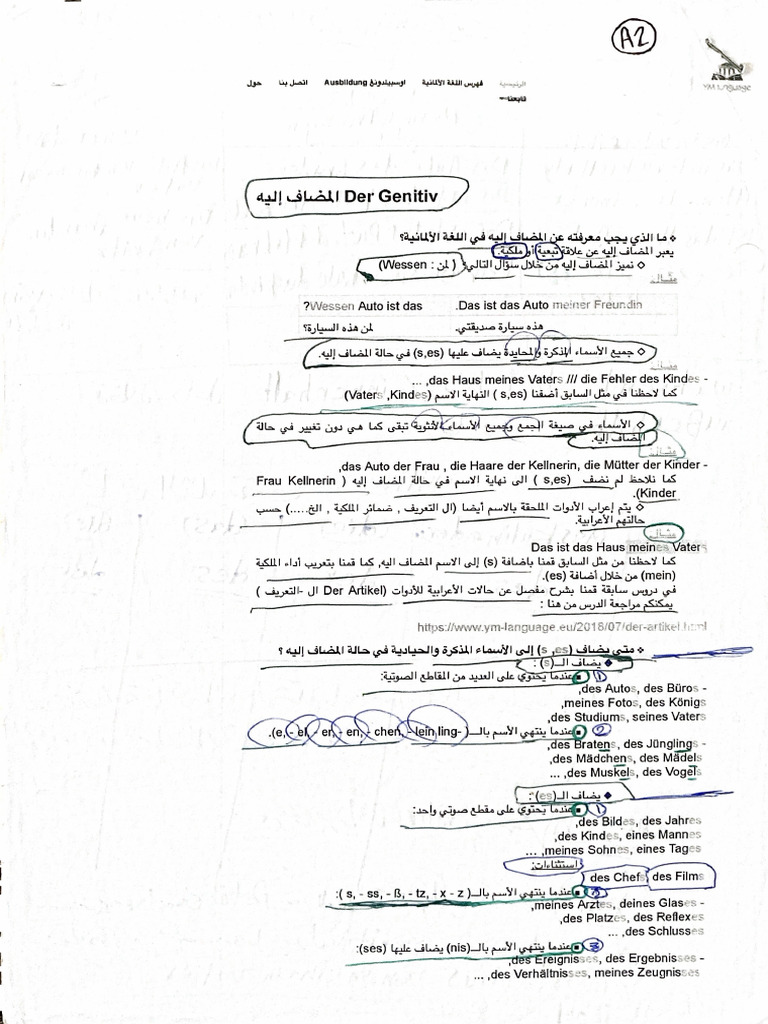 A2
YM Language
الرئيسية فهرس اللغة الألمانية اوسبيلدونغ Ausbildung اتصل بنا حول
تابعنا
Der Genitiv المضاف إليه
❖ ما الذي يجب معرفته عن المضاف إليه في اللغة الألمانية؟
يعبر المضاف إليه عن علاقة تبعية أو ملكية.
◇ نميز المضاف إليه من خلال سؤال التالي: ( لمن : Wessen)
مثال
Das ist das Auto meiner Freundin. Wessen Auto ist das?
هذه سيارة صديقتي. لمن هذه السيارة؟
◇ جميع الأسماء المذكرة والمحايدة يضاف عليها (s,es) في حالة المضاف إليه.
- das Haus meines Vaters /// die Fehler des Kindes, ...
كما لاحظنا في مثل السابق أضفنا (s,es ) النهاية الاسم (Vaters ,Kindes)
◇ الأسماء في صيغة الجمع وجميع الأسماء الأنثوية تبقى كما هي دون تغيير في حالة
المضاف إليه.
مثال
- das Auto der Frau , die Haare der Kellnerin, die Mütter der Kinder,
كما نلاحظ لم نضف (s,es ) الى نهاية الاسم في حالة المضاف إليه ( Frau Kellnerin
Kinder).
◇ يتم إعراب الأدوات الملحقة بالاسم أيضا (ال التعريف , ضمائر الملكية , الخ.....) حسب
حالتهم الأعرابية.
مثال
Das ist das Haus meines Vaters
كما لاحظنا من مثل السابق قمنا باضافة (s) إلى الاسم المضاف اليه, كما قمنا بتعريب أداء الملكية
(mein) من خلال أضافة (es).
في دروس سابقة قمنا بشرح مفصل عن حالات الأعرابية للأدوات (Der Artikel ال -التعريف )
يمكنكم مراجعة الدرس من هنا :
https://www.ym-language.eu/2018/07/der-artikel.html
❖ متى يضاف (s ,es) إلى الأسماء المذكرة والحيادية في حالة المضاف إليه ؟
◆ يضاف الـ(s) :
1 ■ عندما يحتوي على العديد من المقاطع الصوتية:
- des Autos, des Büros,
meines Fotos, des Königs,
des Studiums, seines Vaters,
2 ■ عندما ينتهي الأسم بالــ( -e, - el, - er, - en, - chen, - lein ling).
- des Bratens, des Jünglings,
des Mädchens, des Mädels,
des Muskels, des Vogels, ...
◆ يضاف الــ(es):
1 ■ عندما يحتوي على مقطع صوتي واحد:
- des Bildes, des Jahres,
des Kindes, eines Mannes,
meines Sohnes, eines Tages, ...
استثناءات:
des Chefs, des Films
■ عندما ينتهي الأسم بالــ( s, - ss, - ß, - tz, - x - z ):
- meines Arztes, deines Glases,
des Platzes, des Reflexes,
des Schlusses, ...
3 ■ عندما ينتهي الأسم بالــ(nis) يضاف عليها (ses):
- des Ereignisses, des Ergebnisses,
des Verhältnisses, meines Zeugnisses, ...